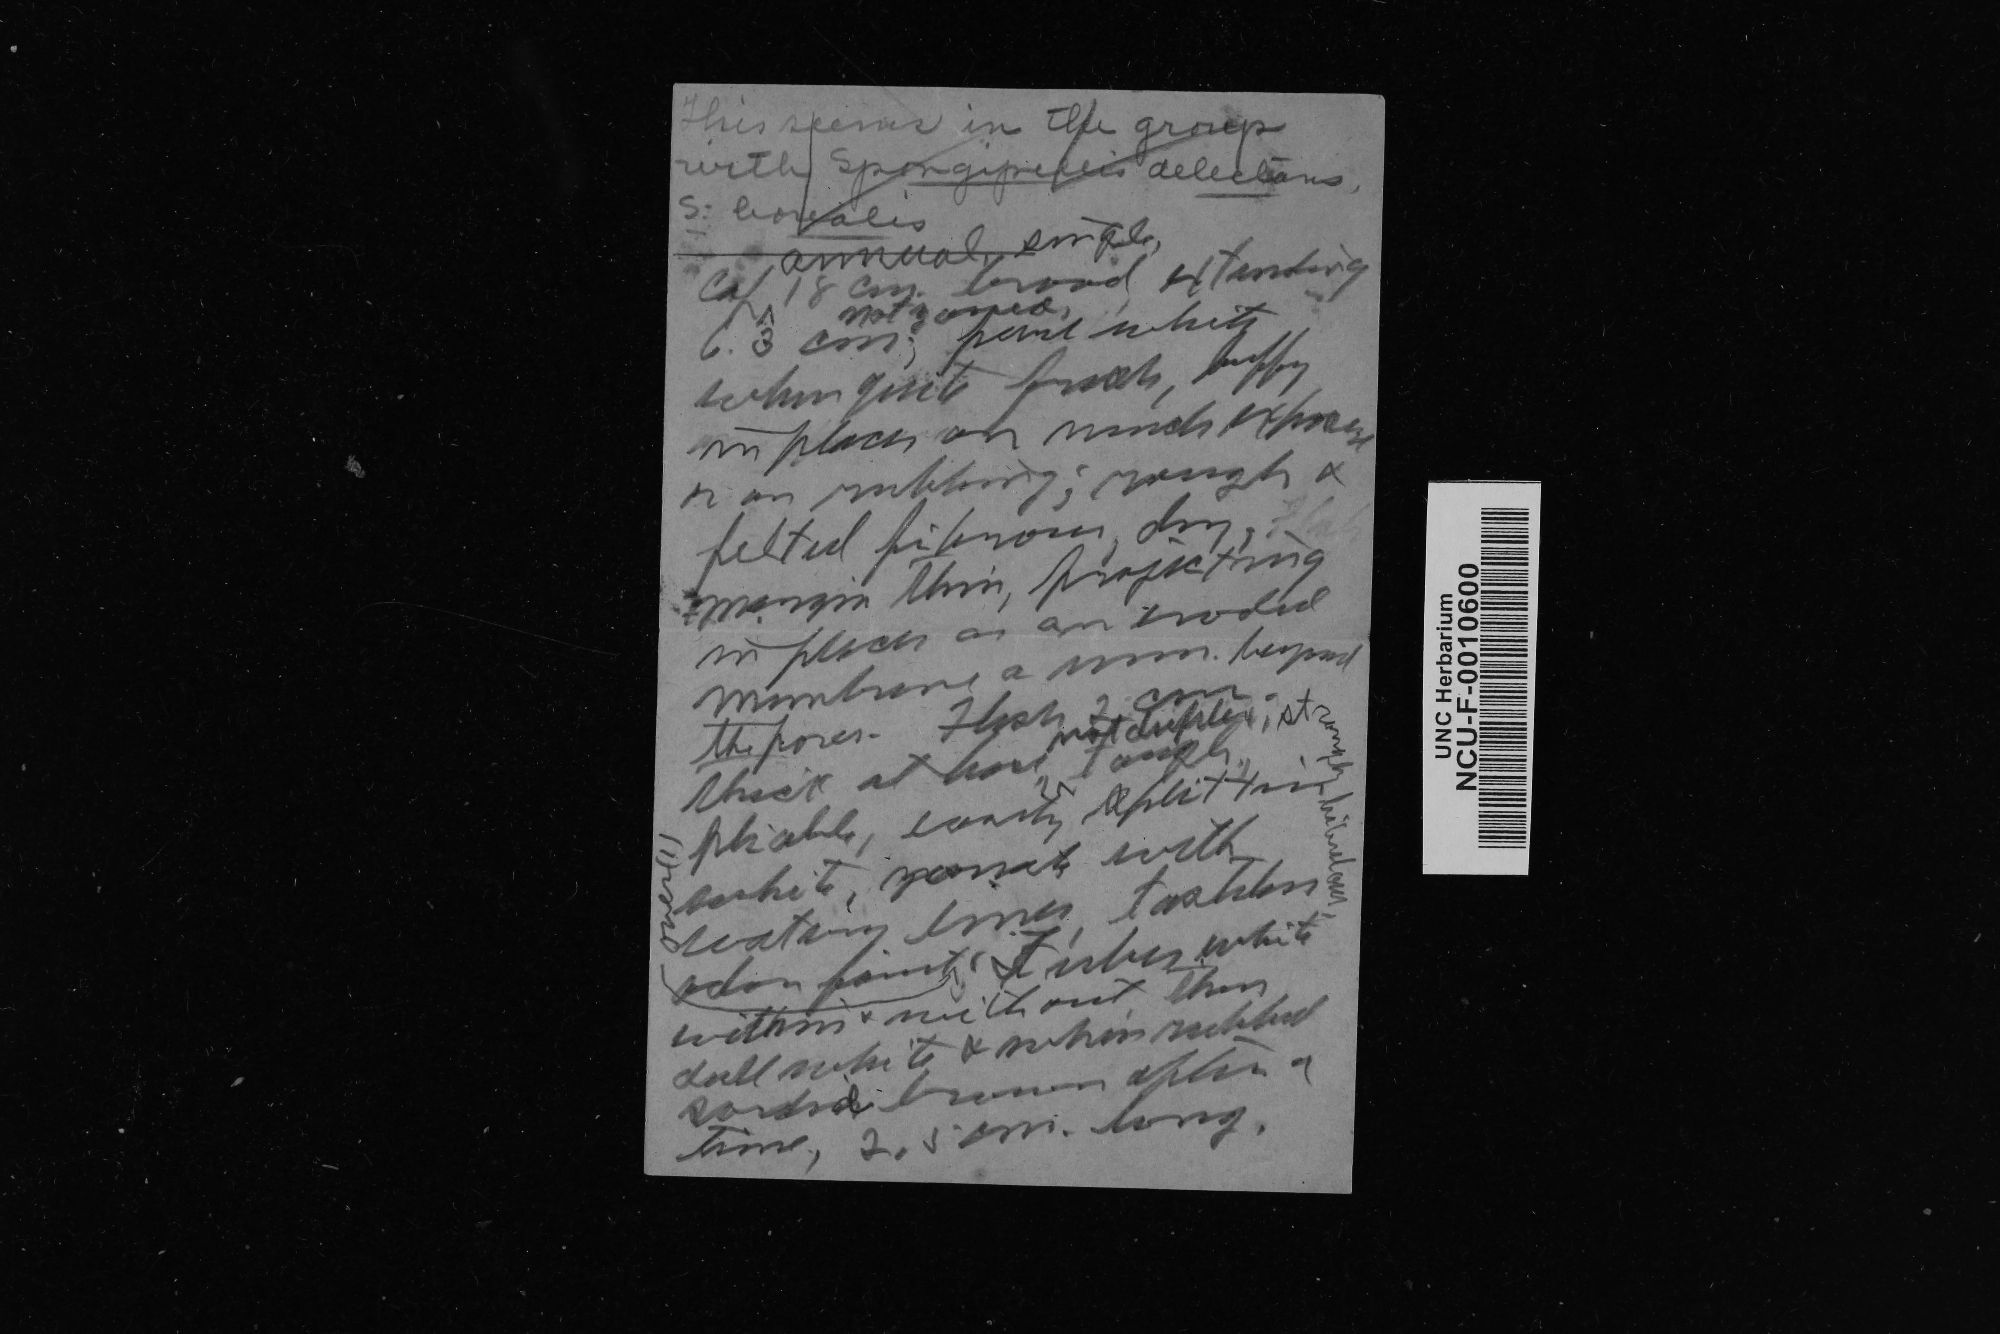 This seems in the group
with Spongipellis delectans,
S. borealis
annual, single,
Ca 18 cm. broad, extending
not zoned,
6.3 cm; pure white
when quite fresh, buffy
in places on much exposure
or on rubbing; rough &
felted fibrous, dry;
margin thin, projecting
in places as an eroded
membrane a mm. beyond
the pores. Flesh 2 cm.
not duplex; strongly
thick at base, tough,
pliable, easily splitting
white, zonate with
watery lines, tasteless
odor faint; Tubes white
(over(1))
within & without then
dull white & when rubbed
sordid brown after a
time, 2.5 cm. long.
UNC Herbarium
NCU-F-0010600